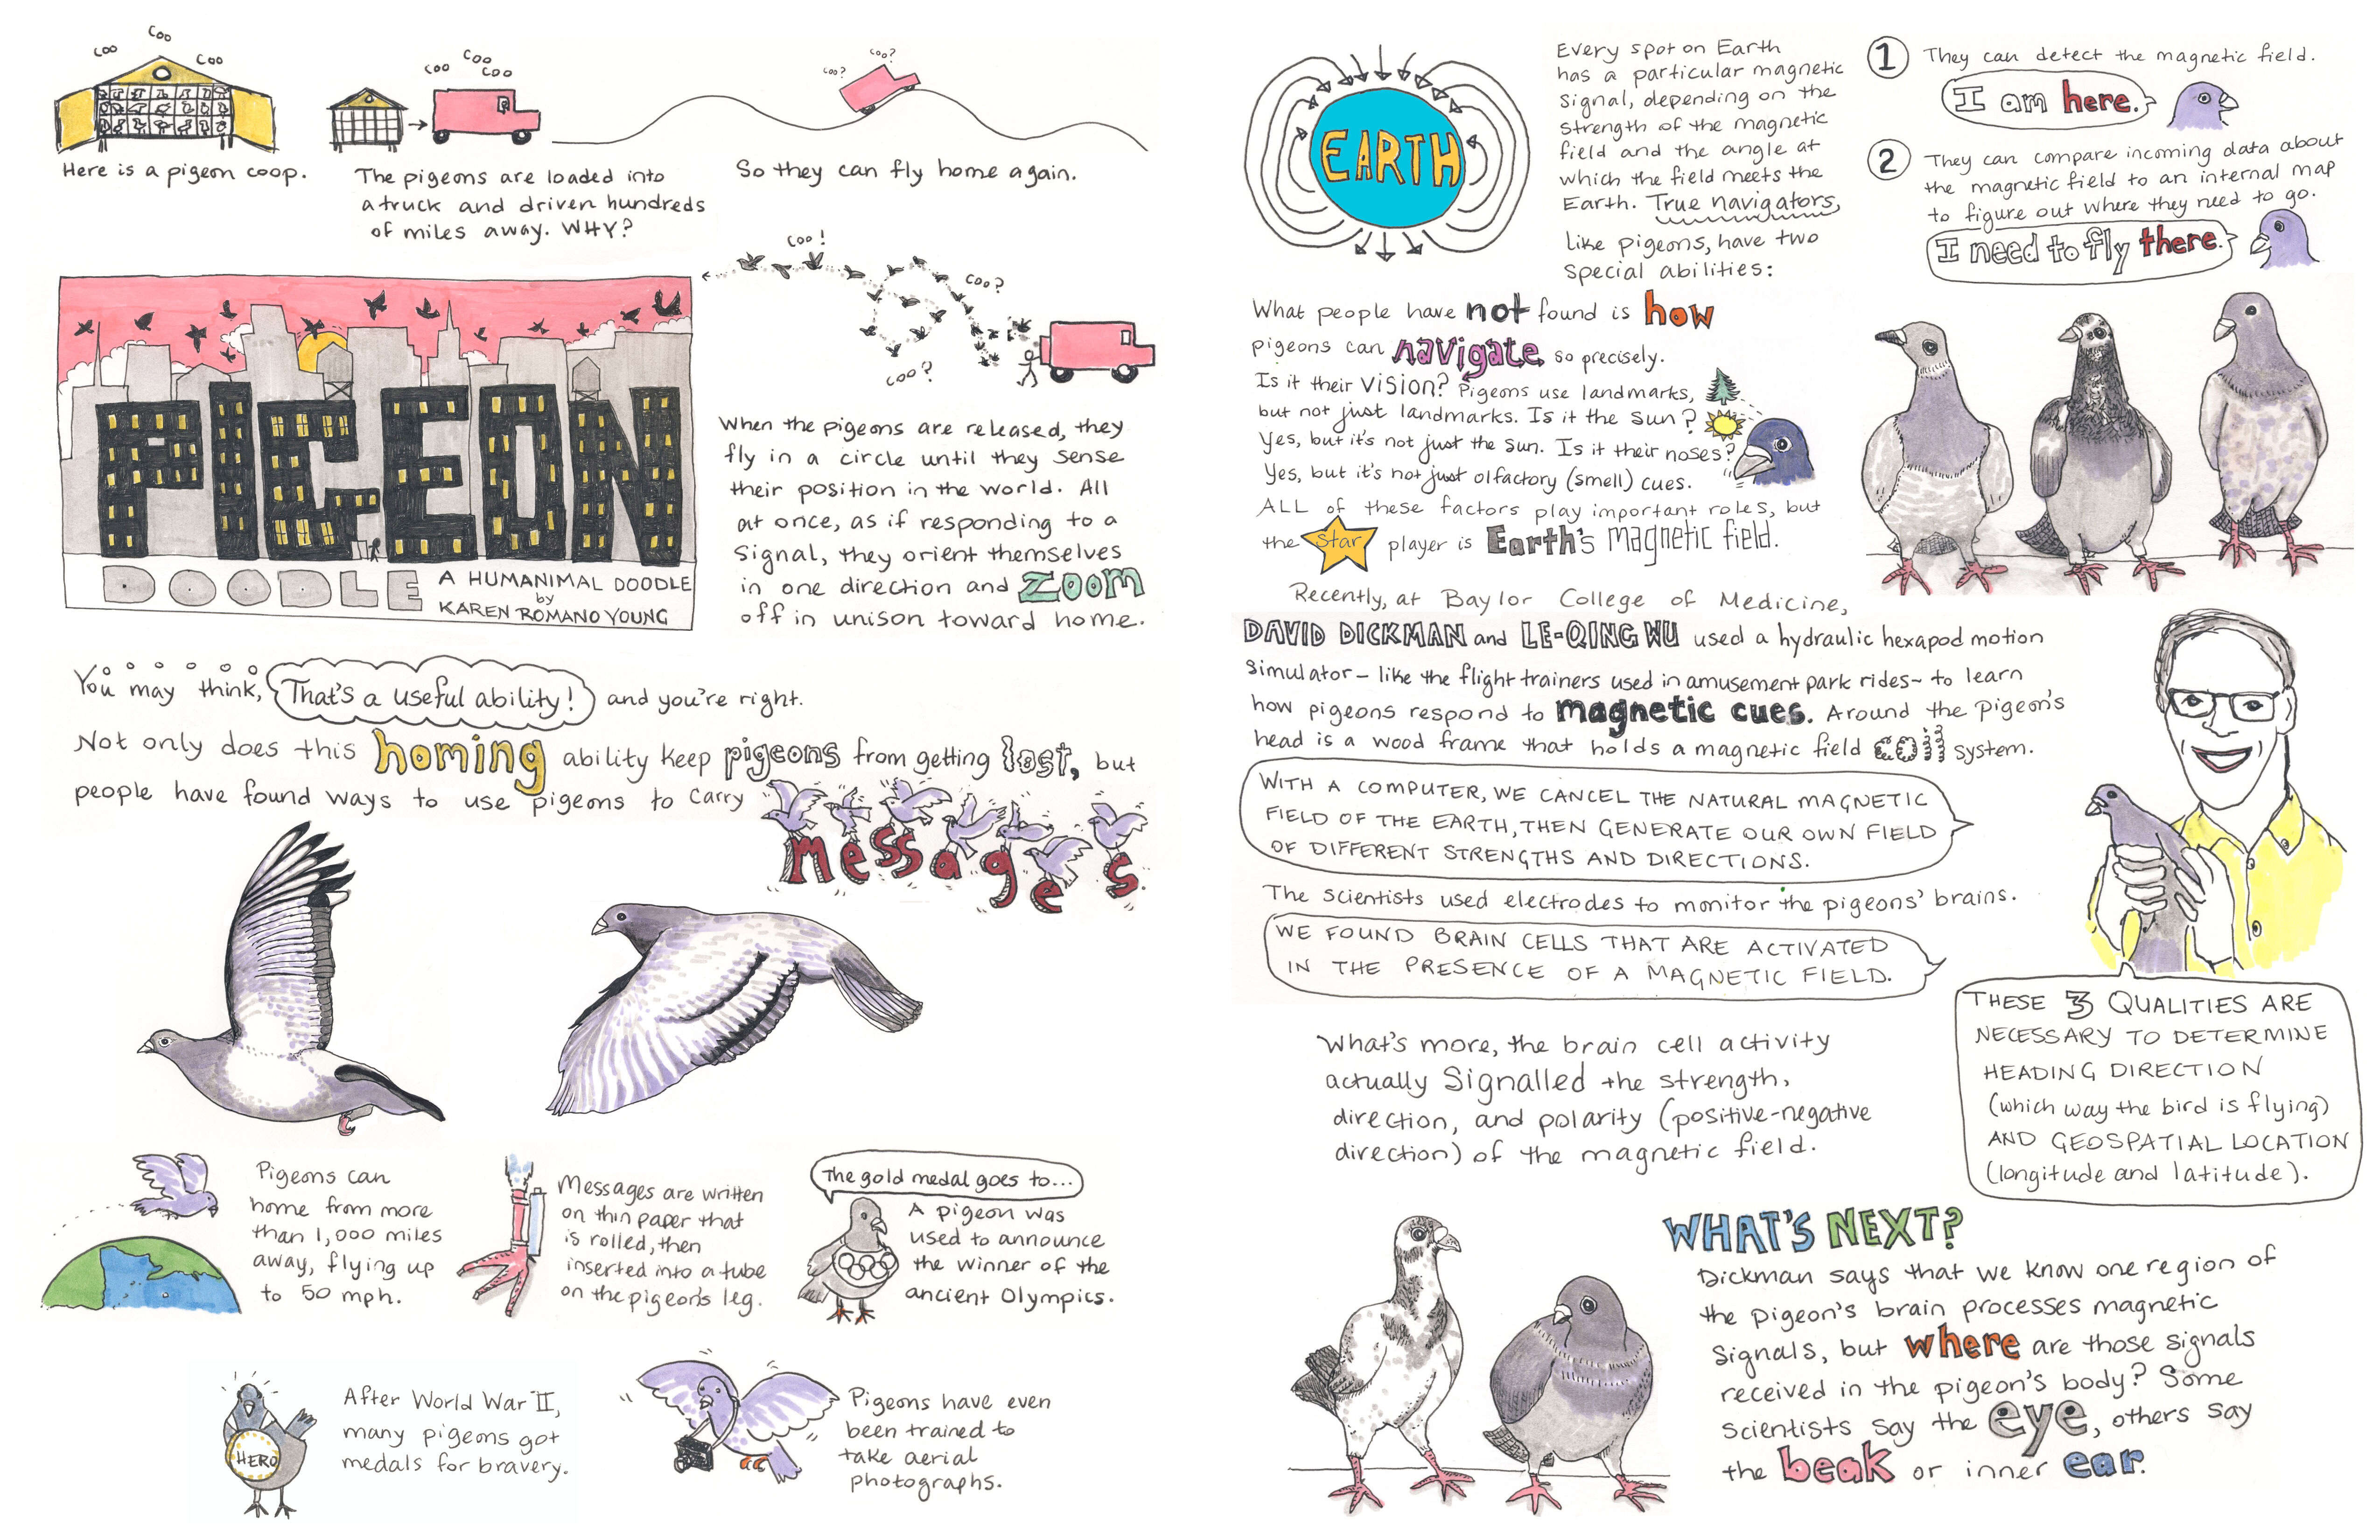 coo
coo
coo
Here is a pigeon coop.
coo
coo
coo
The pigeons are loaded into
a truck and driven hundreds
of miles away. WHY?
coo?
coo?
So they can fly home again.
coo!
coo?
coo?
PIGEON
DOODLE
A HUMANIMAL DOODLE
by
KAREN ROMANO YOUNG
When the pigeons are released, they
fly in a circle until they sense
their position in the world. All
at once, as if responding to a
signal, they orient themselves
in one direction and ZOOM
off in unison toward home.
You may think, That's a useful ability! and you're right.
Not only does this homing ability keep pigeons from getting lost, but
people have found ways to use pigeons to carry
messages.
Pigeons can
home from more
than 1,000 miles
away, flying up
to 50 mph.
Messages are written
on thin paper that
is rolled, then
inserted into a tube
on the pigeon's leg.
The gold medal goes to...
A pigeon was
used to announce
the winner of the
ancient Olympics.
HERO
After World War II,
many pigeons got
medals for bravery.
Pigeons have even
been trained to
take aerial
photographs.
EARTH
Every spot on Earth
has a particular magnetic
signal, depending on the
strength of the magnetic
field and the angle at
which the field meets the
Earth. True navigators,
like pigeons, have two
special abilities:
1 They can detect the magnetic field.
I am here.
2 They can compare incoming data about
the magnetic field to an internal map
to figure out where they need to go.
I need to fly there.
What people have not found is how
pigeons can navigate so precisely.
Is it their vision? Pigeons use landmarks,
but not just landmarks. Is it the sun?
Yes, but it's not just the sun. Is it their noses?
Yes, but it's not just olfactory (smell) cues.
ALL of these factors play important roles, but
the star player is Earth's magnetic field.
Recently, at Baylor College of Medicine,
DAVID DICKMAN and LE-QING WU used a hydraulic hexapod motion
simulator - like the flight trainers used in amusement park rides - to learn
how pigeons respond to magnetic cues. Around the pigeon's
head is a wood frame that holds a magnetic field coil system.
WITH A COMPUTER, WE CANCEL THE NATURAL MAGNETIC
FIELD OF THE EARTH, THEN GENERATE OUR OWN FIELD
OF DIFFERENT STRENGTHS AND DIRECTIONS.
The scientists used electrodes to monitor the pigeons' brains.
WE FOUND BRAIN CELLS THAT ARE ACTIVATED
IN THE PRESENCE OF A MAGNETIC FIELD.
What's more, the brain cell activity
actually signalled the strength,
direction, and polarity (positive-negative
direction) of the magnetic field.
THESE 3 QUALITIES ARE
NECESSARY TO DETERMINE
HEADING DIRECTION
(which way the bird is flying)
AND GEOSPATIAL LOCATION
(longitude and latitude).
WHAT'S NEXT?
Dickman says that we know one region of
the pigeon's brain processes magnetic
signals, but where are those signals
received in the pigeon's body? Some
scientists say the eye, others say
the beak or inner ear.